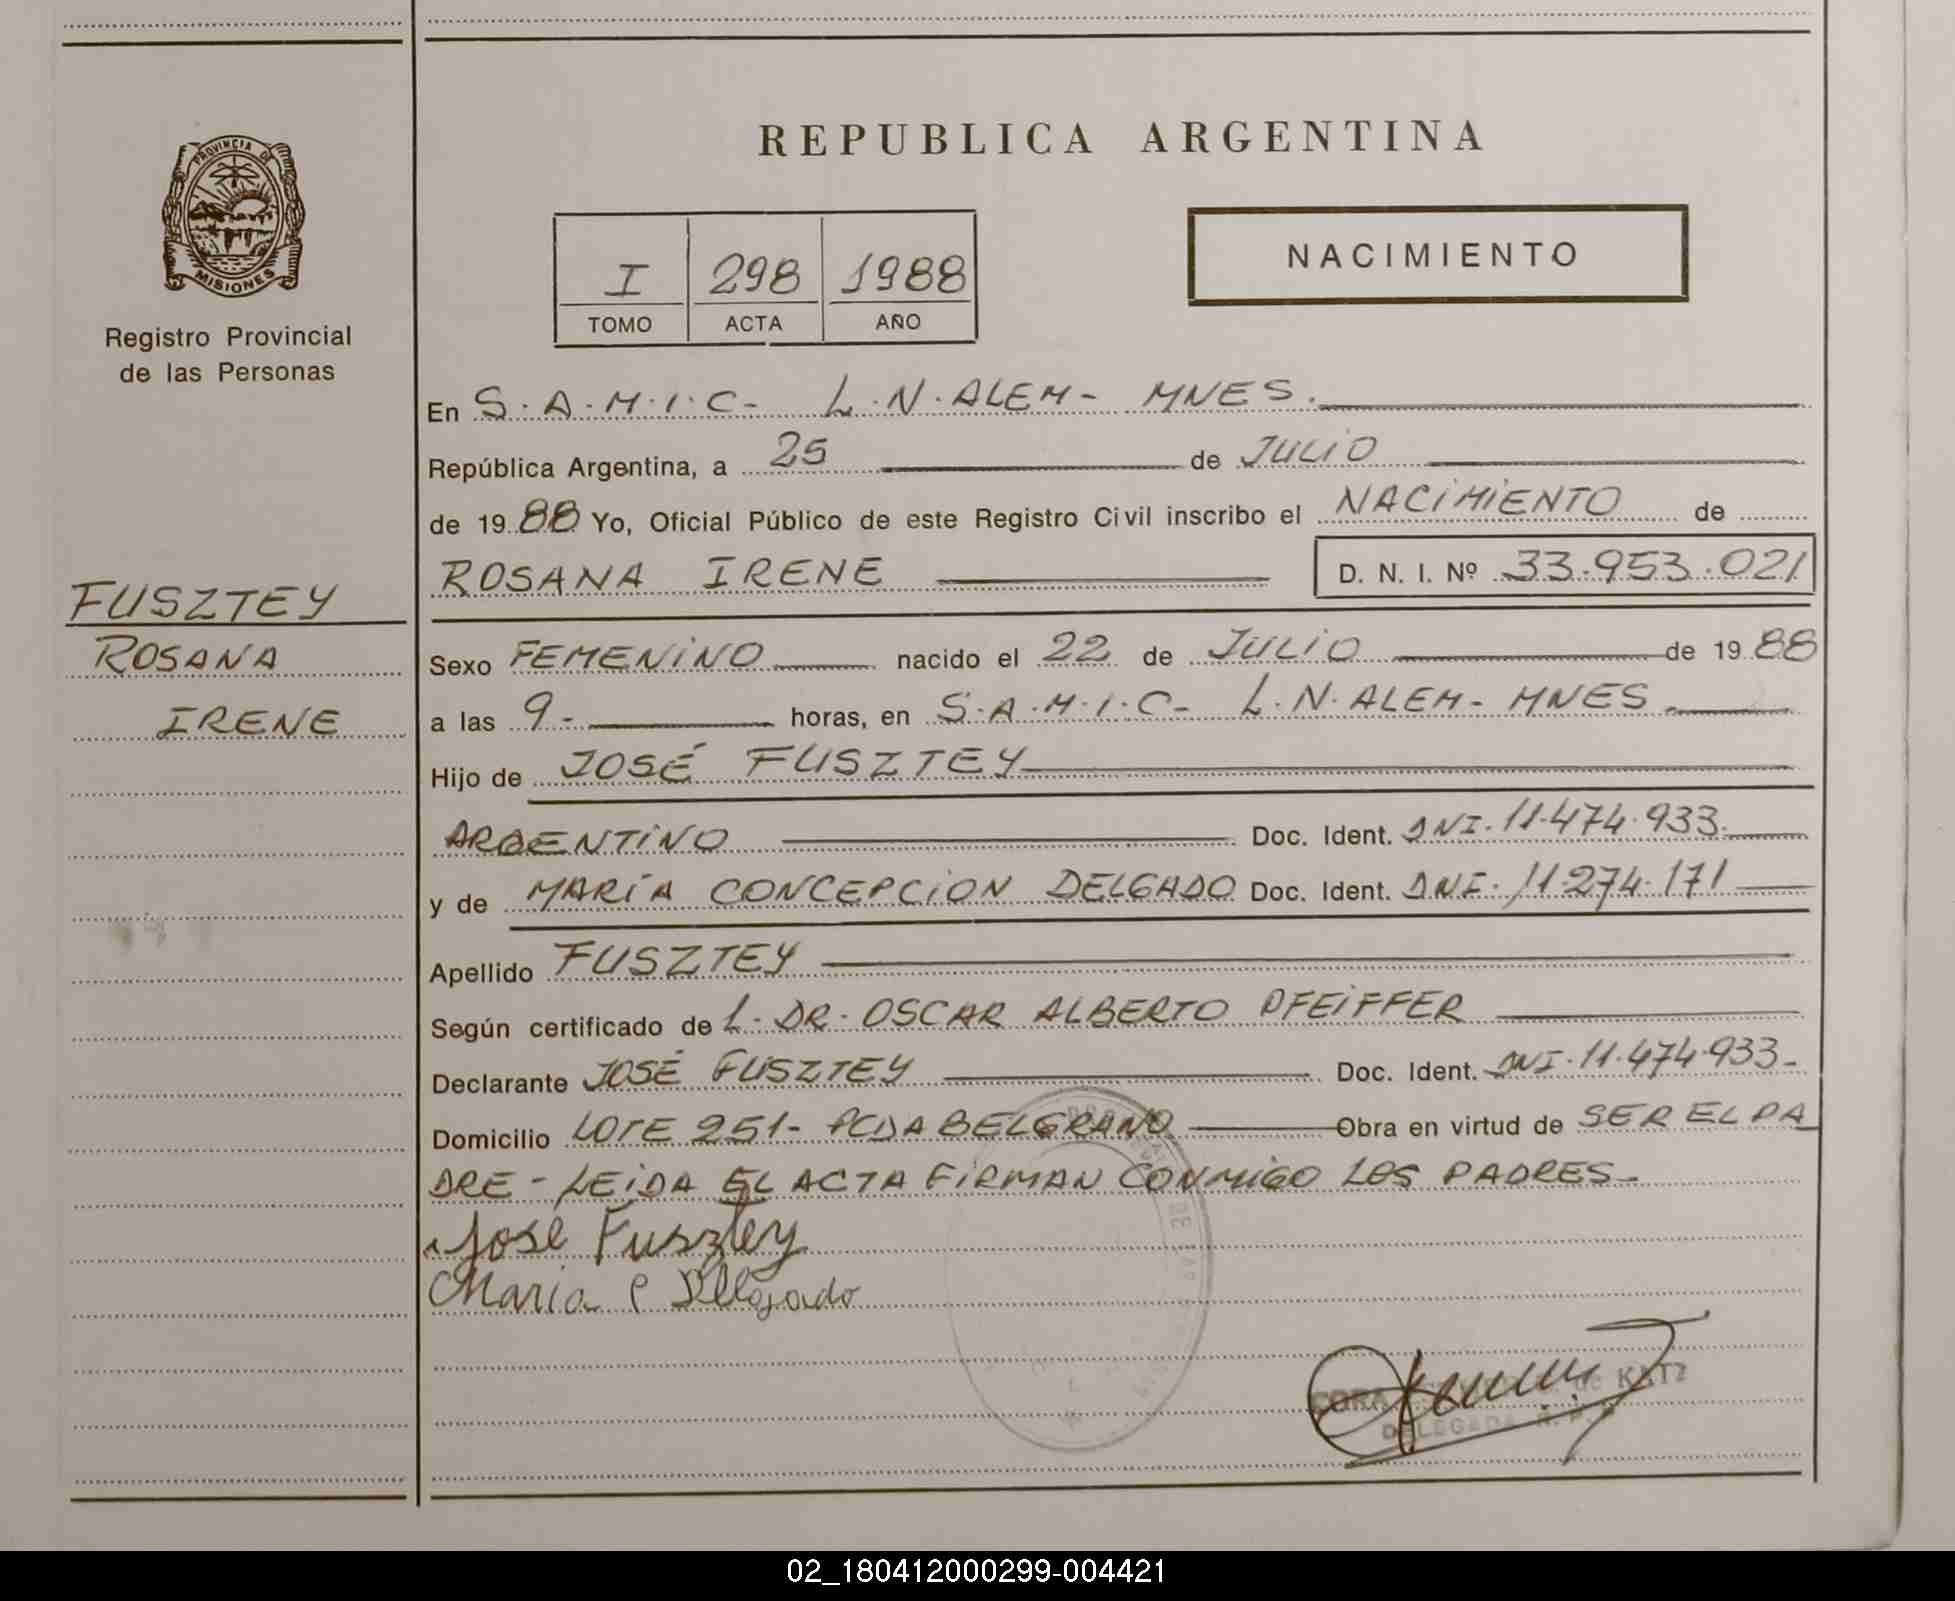 PROVINCIA DE
MISIONES
Registro Provincial
de las Personas
FUSZTEY
ROSANA
IRENE
REPUBLICA ARGENTINA
I 298 1988
TOMO ACTA AÑO
NACIMIENTO
En S.A.M.I.C- L.N.ALEM- MNES.
República Argentina, a 25 de JULIO
de 1988 Yo, Oficial Público de este Registro Civil inscribo el NACIMIENTO de
ROSANA IRENE D. N. I. Nº 33.953.021
Sexo FEMENINO nacido el 22 de JULIO de 1988
a las 9- horas, en S.A.M.I.C- L.N.ALEM- MNES.
Hijo de JOSÉ FUSZTEY
ARGENTINO Doc. Ident. DNI. 11.474.933.
y de MARÍA CONCEPCION DELGADO Doc. Ident. DNI. 11.274.171
Apellido FUSZTEY
Según certificado de L. DR. OSCAR ALBERTO PFEIFFER
Declarante JOSÉ FUSZTEY Doc. Ident. DNI. 11.474.933-
Domicilio LOTE 251- PCDA BELGRANO Obra en virtud de SER EL PA
DRE - LEIDA EL ACTA FIRMAN CONMIGO LOS PADRES-
José Fusztey
Maria C Dellgado
CORA de KATZ
DELEGADA R. P. P.
02_180412000299-004421